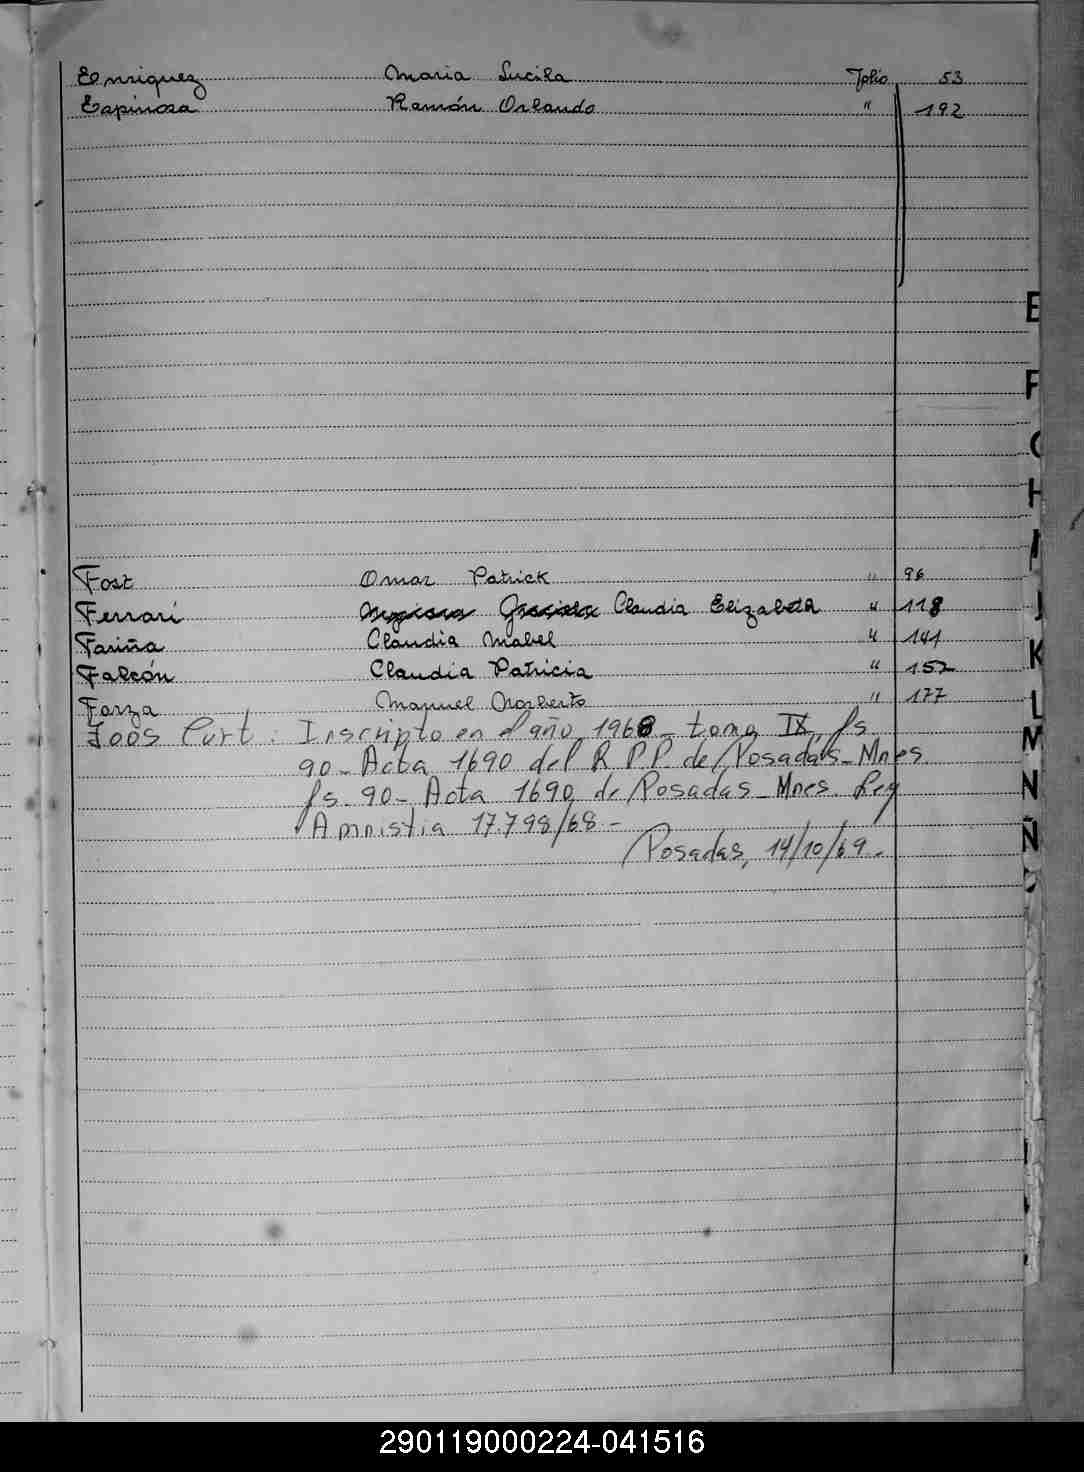 Enriquez Maria Lucila Folio 53
Espinosa Ramón Orlando " 192
E
F
G
H
I
J
K
L
M
N
Ñ
Fost Omar Patrick " 96
Ferrari Claudia Elizabeth " 118
Fariña Claudia Mabel " 141
Falcón Claudia Patricia " 152
Forza Manuel Norberto " 177
Foos Curt. Inscripto en el año 1968 - tomo IX, fs
90 - Acta 1690 del R.P.P. de Posadas - Mnes
fs. 90 - Acta 1690 de Posadas - Mnes. Ley
Amnistia 17.798/68 -
Posadas, 14/10/69.-
290119000224-041516